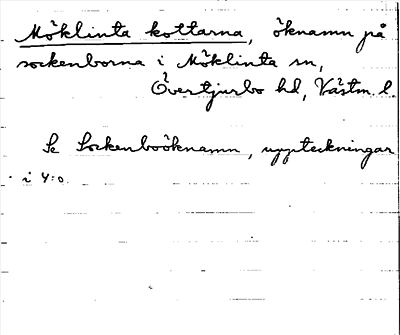 Möklinta kottarna, öknamn på
sockenborna i Möklinta sn,
Övertjurbo hd, Västm. l.
Se Sockenboöknamn, uppteckningar
i 4:o.